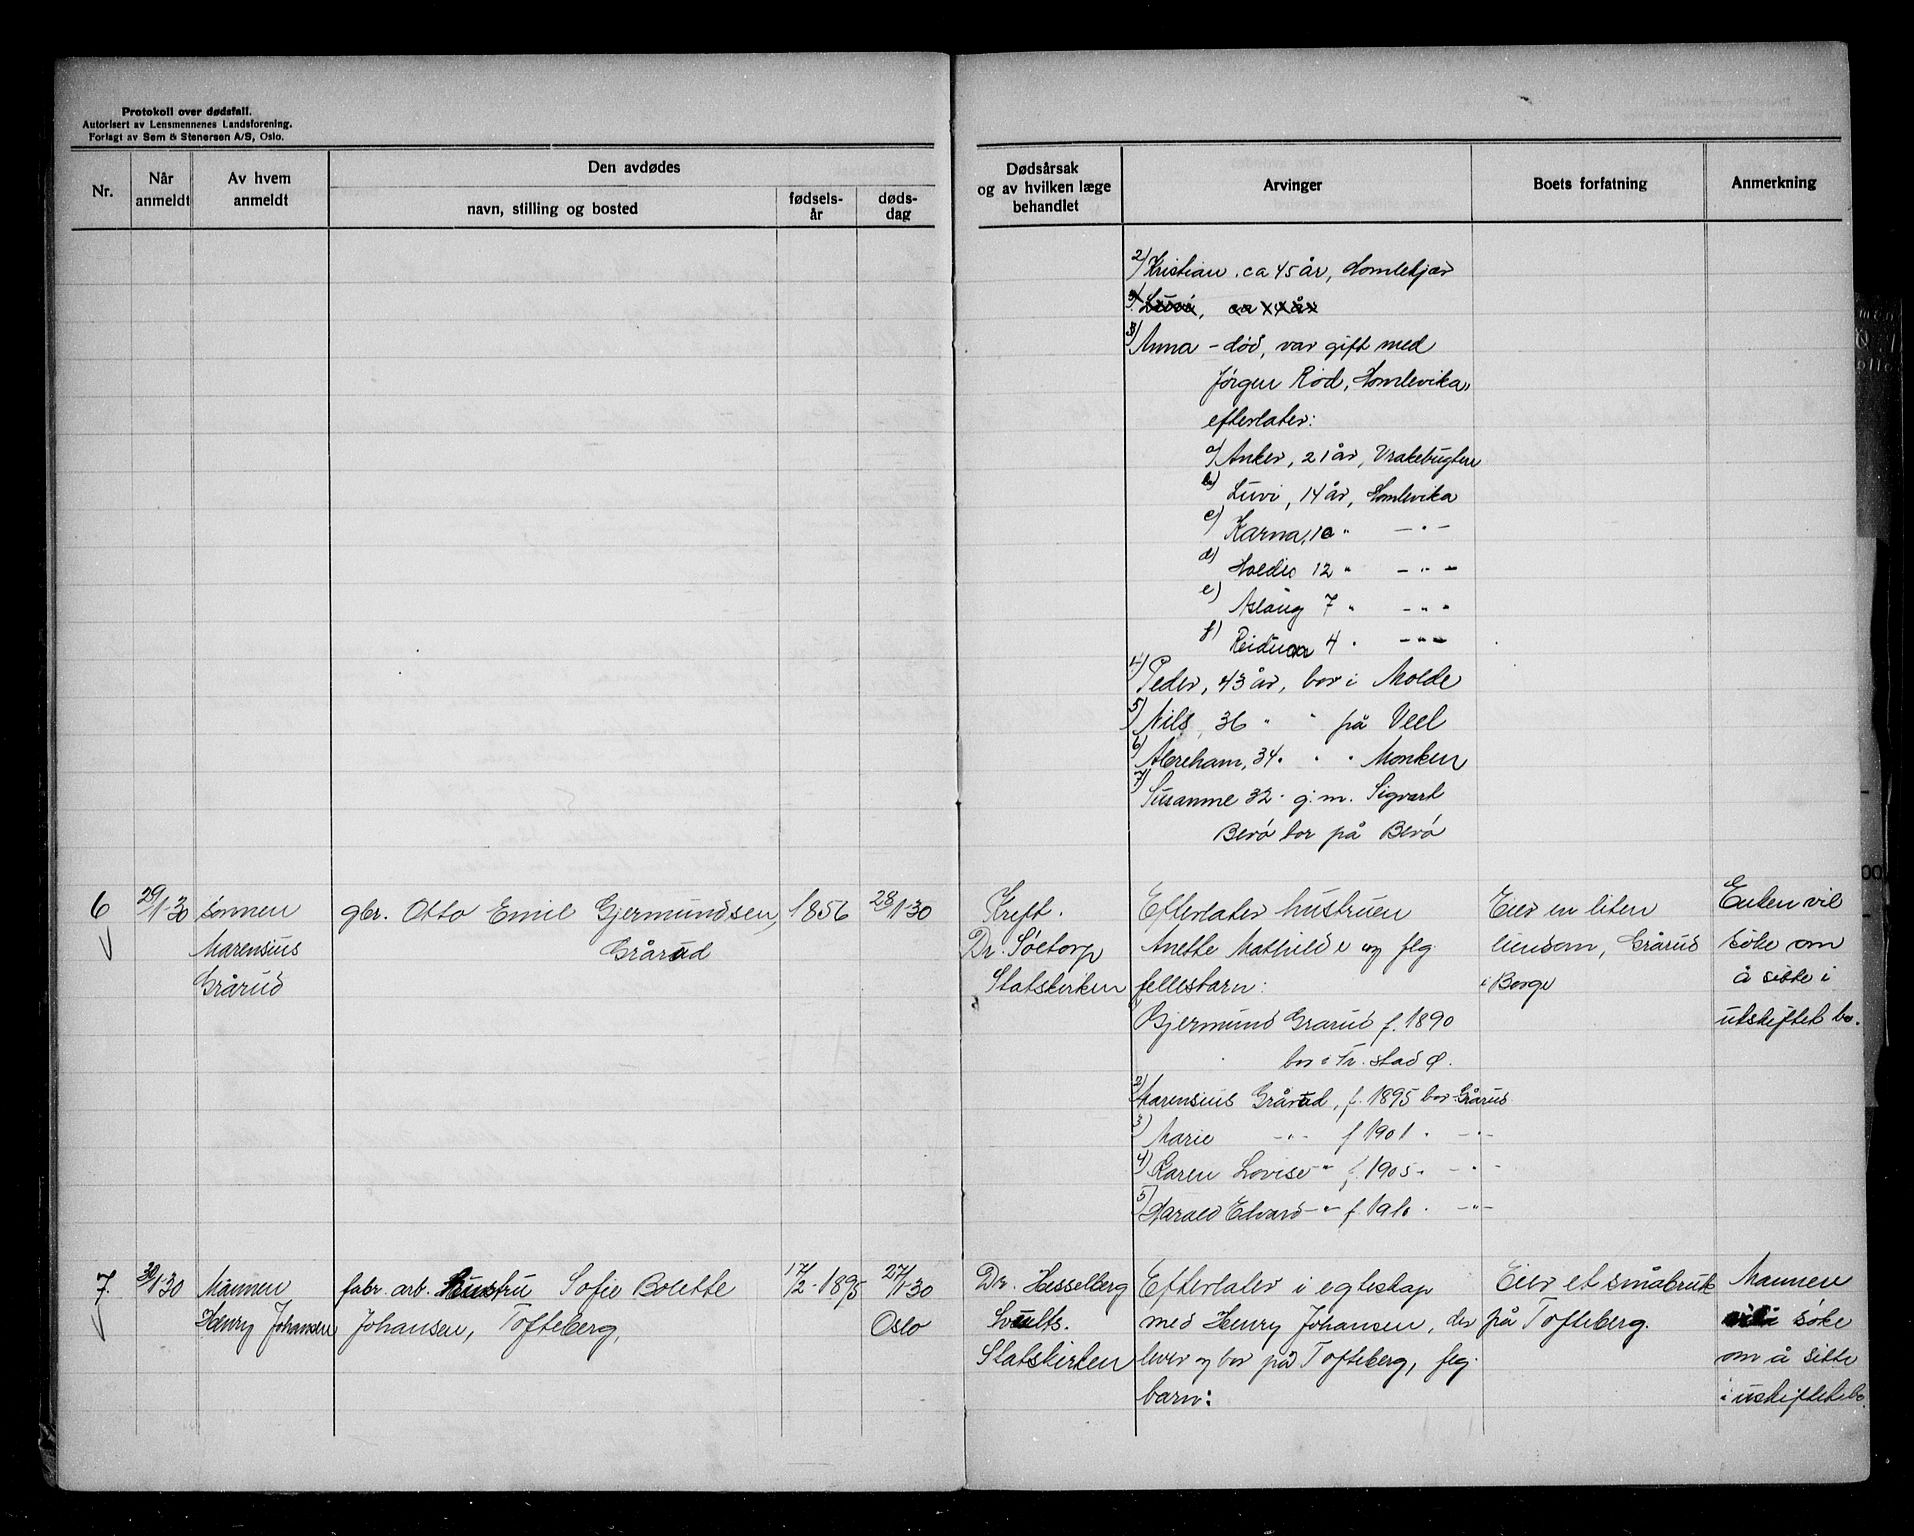 Protokoll over dødsfall.
Autorisert av Lensmennenes Landsforening.
Forlagt av Sem & Stenersen A/S, Oslo.
Nr.
Når anmeldt
Av hvem anmeldt
Den avdødes
navn, stilling og bosted
fødsels-
år
døds-
dag
Dødsårsak
og av hvilken læge
behandlet
Arvinger
Boets forfatning
Anmerkning
2) Kristian, ca 45 år, Homlekjær
3) Anna – død, var gift med
Jørgen Rød, Homlevika,
efterlater:
a) Anker, 21 år, Vrakebugten
b) Luvi, 14 år, Homlevika
c) Karna, 10 " – " –
d) 12 " – " –
e) Aslaug 7 " – " –
f) Reidun 4 " – " –
4) Peder, 43 år, bor i Molde
5) Nils, 36 " " på Veel
6) Abreham, 34 " " " Monken
7) Susanne 32 " g.m. Sigvart
Berø bor på Berø
6
29/1-30
sønnen
Marensius
Grårud
gbr. Otto Emil Gjermundsen,
Grårud
1856
28/1-30
Kreft.
Dr. Søetorp
Statskirken
Efterlater hustruen
Anette Mathilde og flg.
fellesbarn:
Gjermund Grarud f. 1890
bor i Fr.stad Ø.
2) Marensius Grårud, f. 1895 bor Grårud
3) Marie – " – f 1901 " – " –
4) Karen Lovise " f. 1905 " – " –
5) Harald Edvard – " – f. 1910 " – " –
Eier en liten
eiendom, Grårud
i Borge
Enken vil
søke om
å sitte i
utskiftet bo.
7.
30/1-30
Mannen
Henry Johansen
fabr. arb. hustru Sofie Bolette
Johansen, Tofteberg,
17/2-1895
27/1-30
Oslo
Dr. Hesselberg
Statskirken
Efterlater i egteskap
med Henry Johansen, der
lever og bor på Tofteberg, flg.
barn:
Eier et småbruk
på Tofteberg.
Mannen
søke
om å sitte
i uskiftet bo.